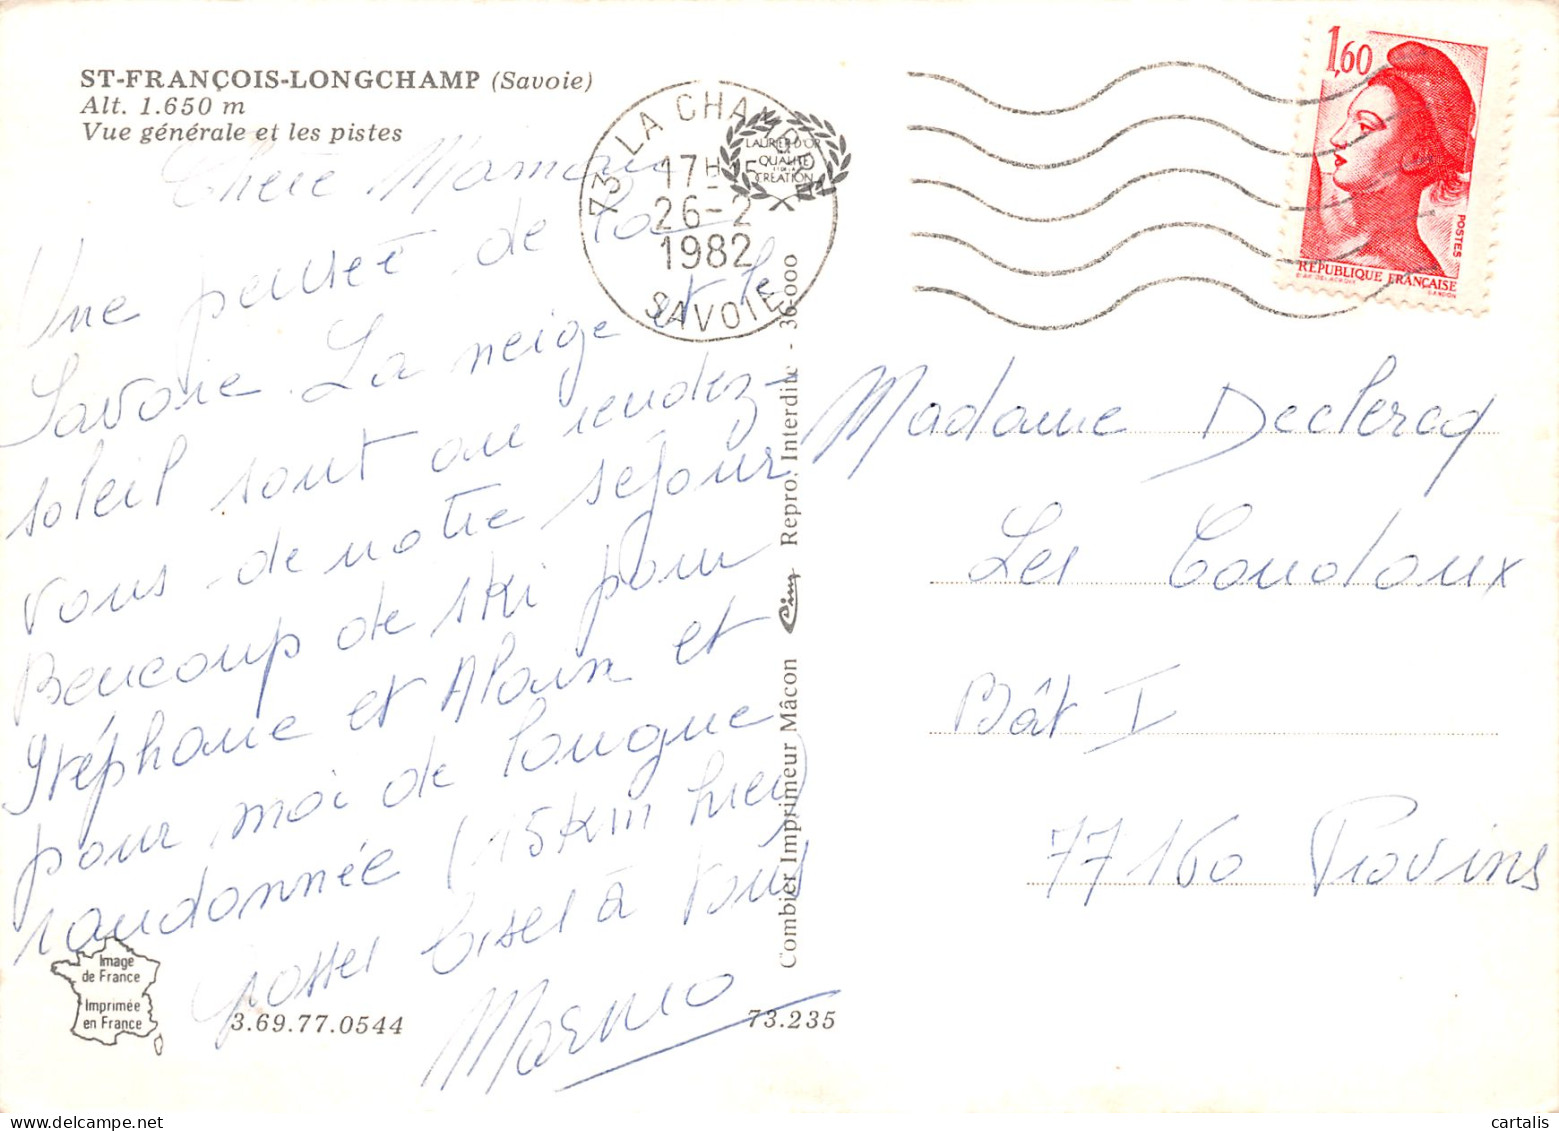 ST-FRANÇOIS-LONGCHAMP (Savoie)
Alt. 1.650 m
Vue générale et les pistes
Chère Mamone
Une pensée de la
Savoie. La neige et le
soleil sont au rendez-
vous de notre séjour
Beaucoup de ski pour
Stéphane et Alain et
pour moi de longue
randonnée (15 km hier)
Grosses bises à vous
73 LA CHAMBRE
17H15
26-2
1982
SAVOIE
LAURIER D'OR
DE LA
QUALITÉ
ET DE LA
CRÉATION
1,60
POSTES
RÉPUBLIQUE FRANÇAISE
D'AP. DELACROIX
GANDON
Combier Imprimeur Mâcon Cim Repro. Interdite - 36-000
Madame Declercq
Les Coudoux
Bât I
77160 Provins
Image
de France
Imprimée
en France
3.69.77.0544
73.235
cartalis